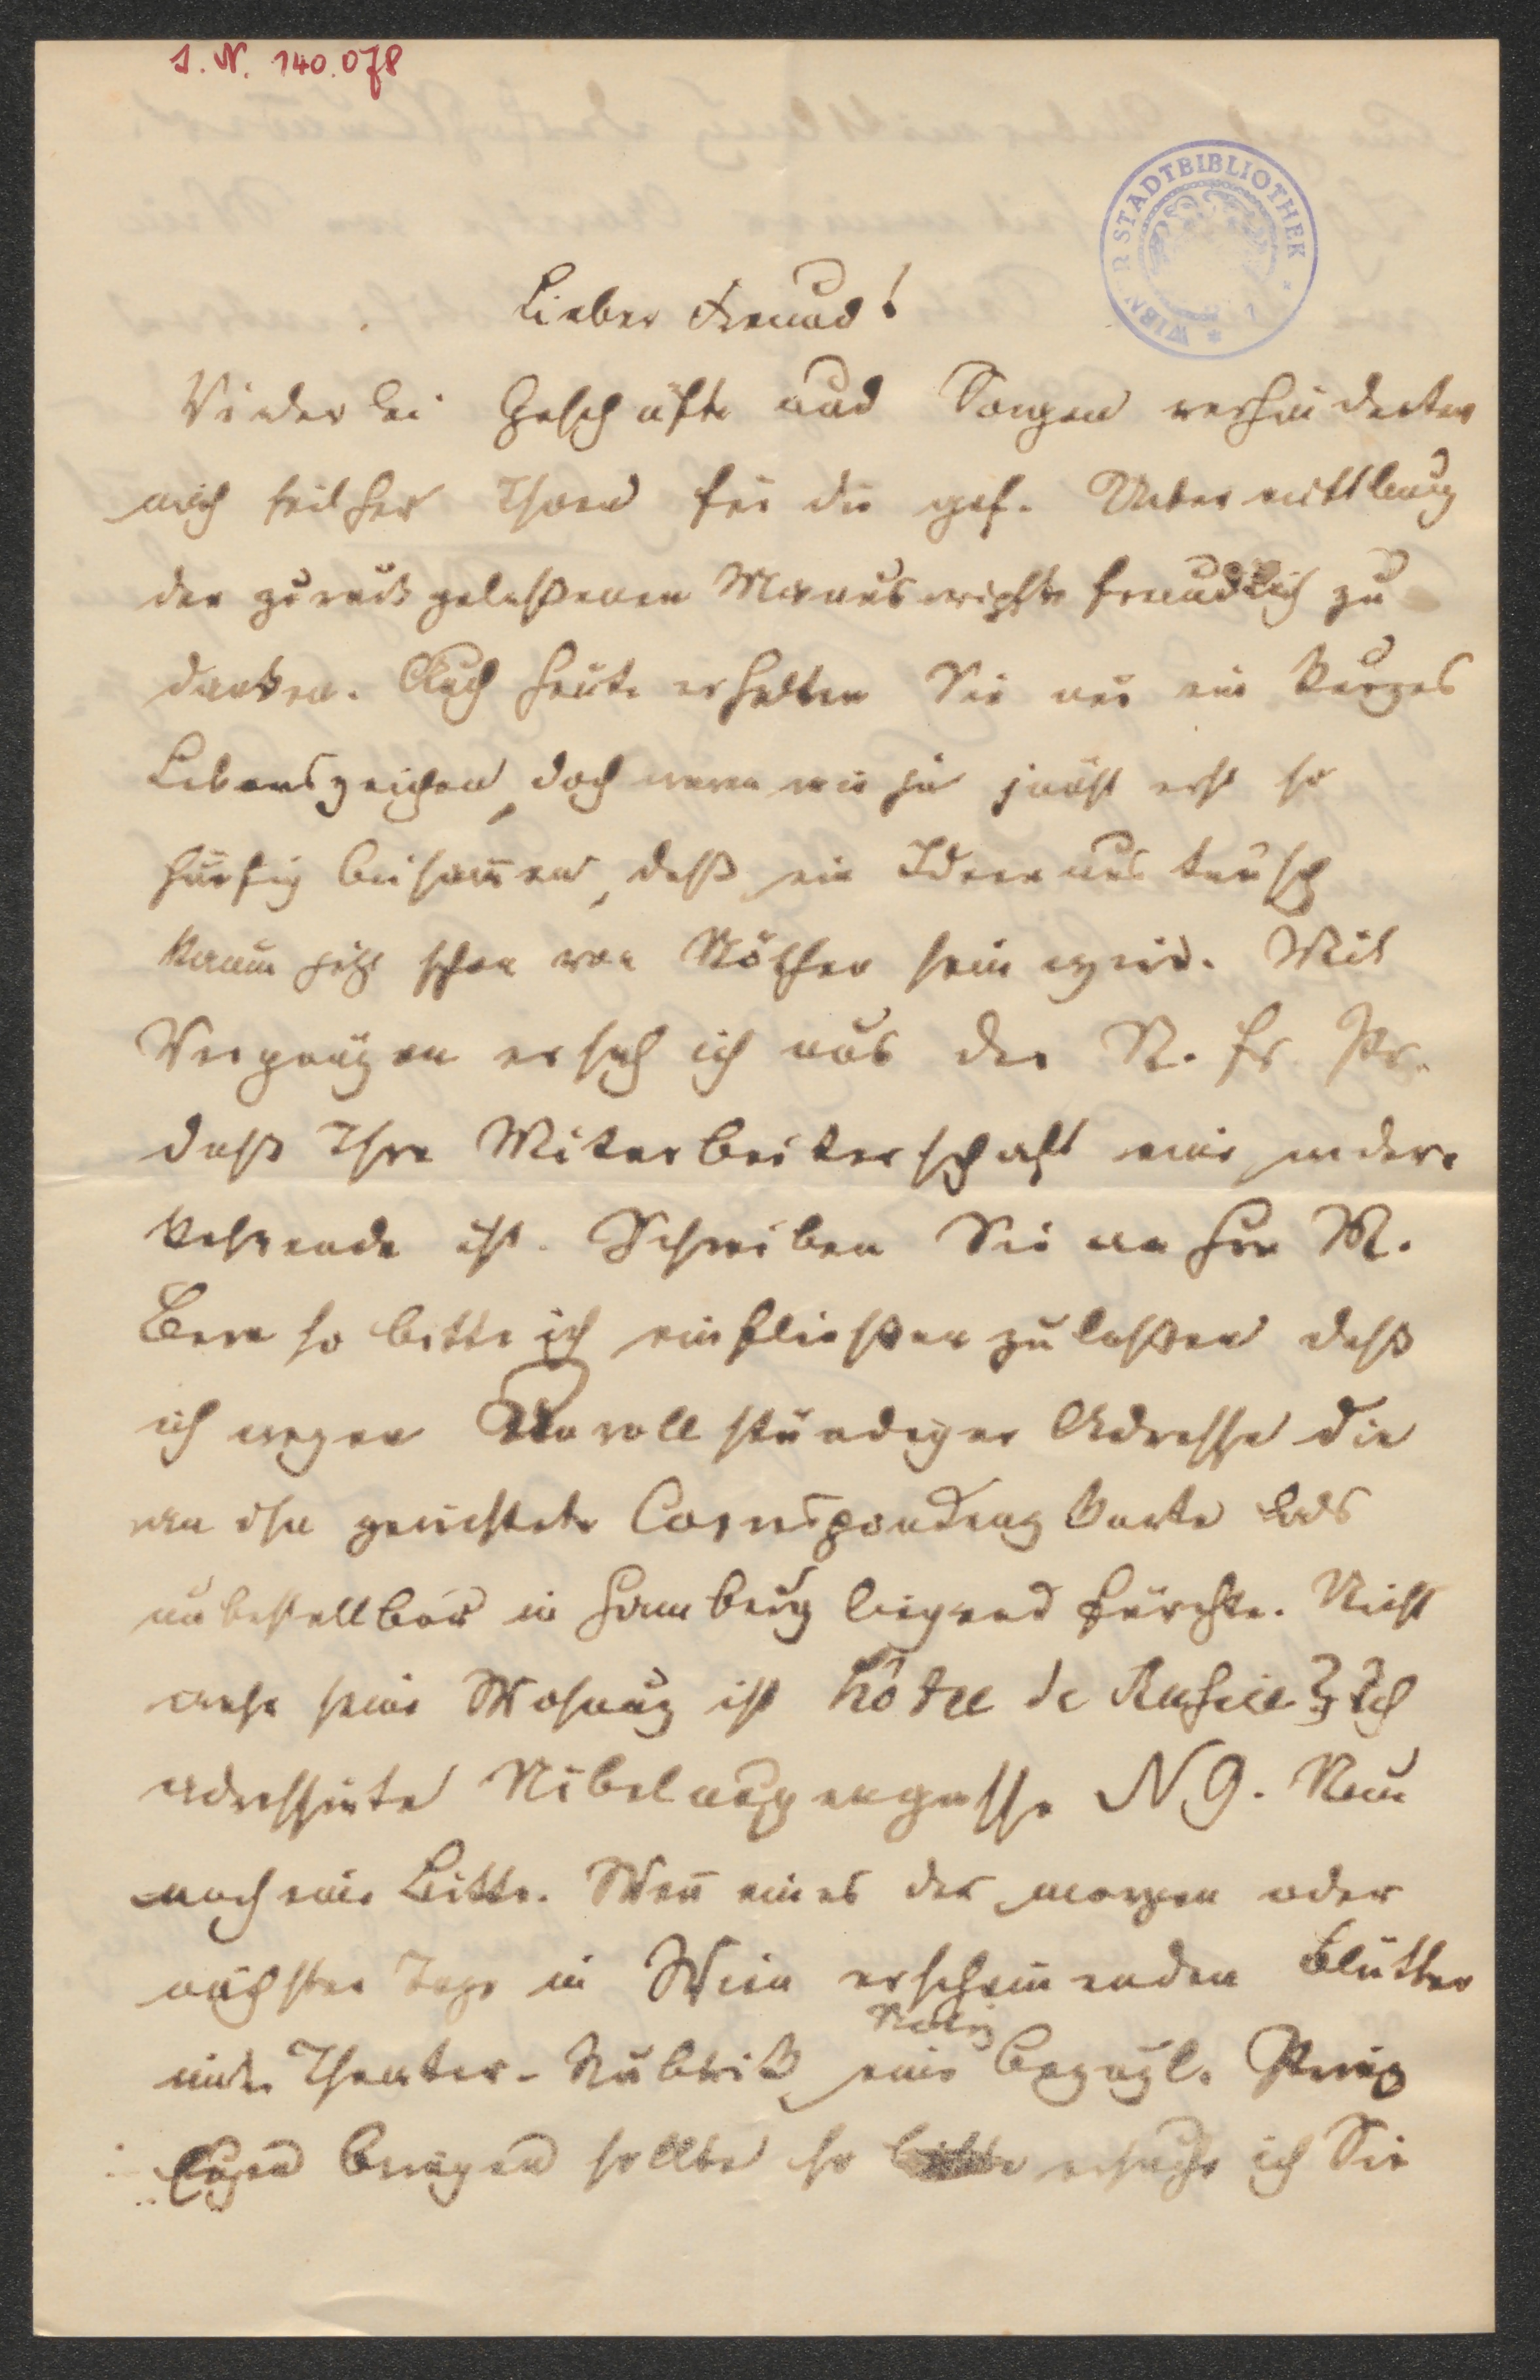 I. N. 140.078
WIENER STADTBIBLIOTHEK
Lieber Freund!
Vielerlei Geschäfte und Sorgen verhinderten
mich seither Ihnen für die gef. Uebermittlung
der zurückgelaßenen Manuscripte freundlich zu
danken. Auch heute erhalten Sie nur ein kurzes
Lebenszeichen, doch waren wir ja jüngst erst so
häufig beisam̅en, daß ein Ideenaustausch
kaum jetzt schon von Nöthen sein wird. Mit
Vergnügen ersah ich aus der N. fr. Pr.
daß Ihre Mitarbeiterschaft eine wieder-
kehrende ist. Schreiben Sie an Hrn M.
so bitte ich einfließen zu laßen daß
ich wegen Unvollständiger Adresse die
an ihn gerichtete Correspondenzkarte als
unbestellbar in Hamburg liegend fürchte. Nicht
wahr seine Wohnung ist hôtel de Russie? Ich
adressirte Nibelungengasse N 9. Nun
noch eine Bitte. Wen̅ eines der morgen oder
nächster Tage in Wien erscheinenden Blätter
in der Theater-Rubrik eine bezügl. Prinz
Notiz
Eugen bringen sollte so bitte ersuche ich Sie